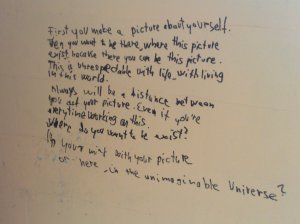 First you make a picture about yourself.
Then you want to be there, where this picture
exist because there you can be this picture.
This is unrespectable with life, with living
in this world.
Always will be a distance between
you and your picture. Even if you're
everytime working on this.
Where do you want to be exist?
In your mind with your picture
or here, in the unimaginable Universe?